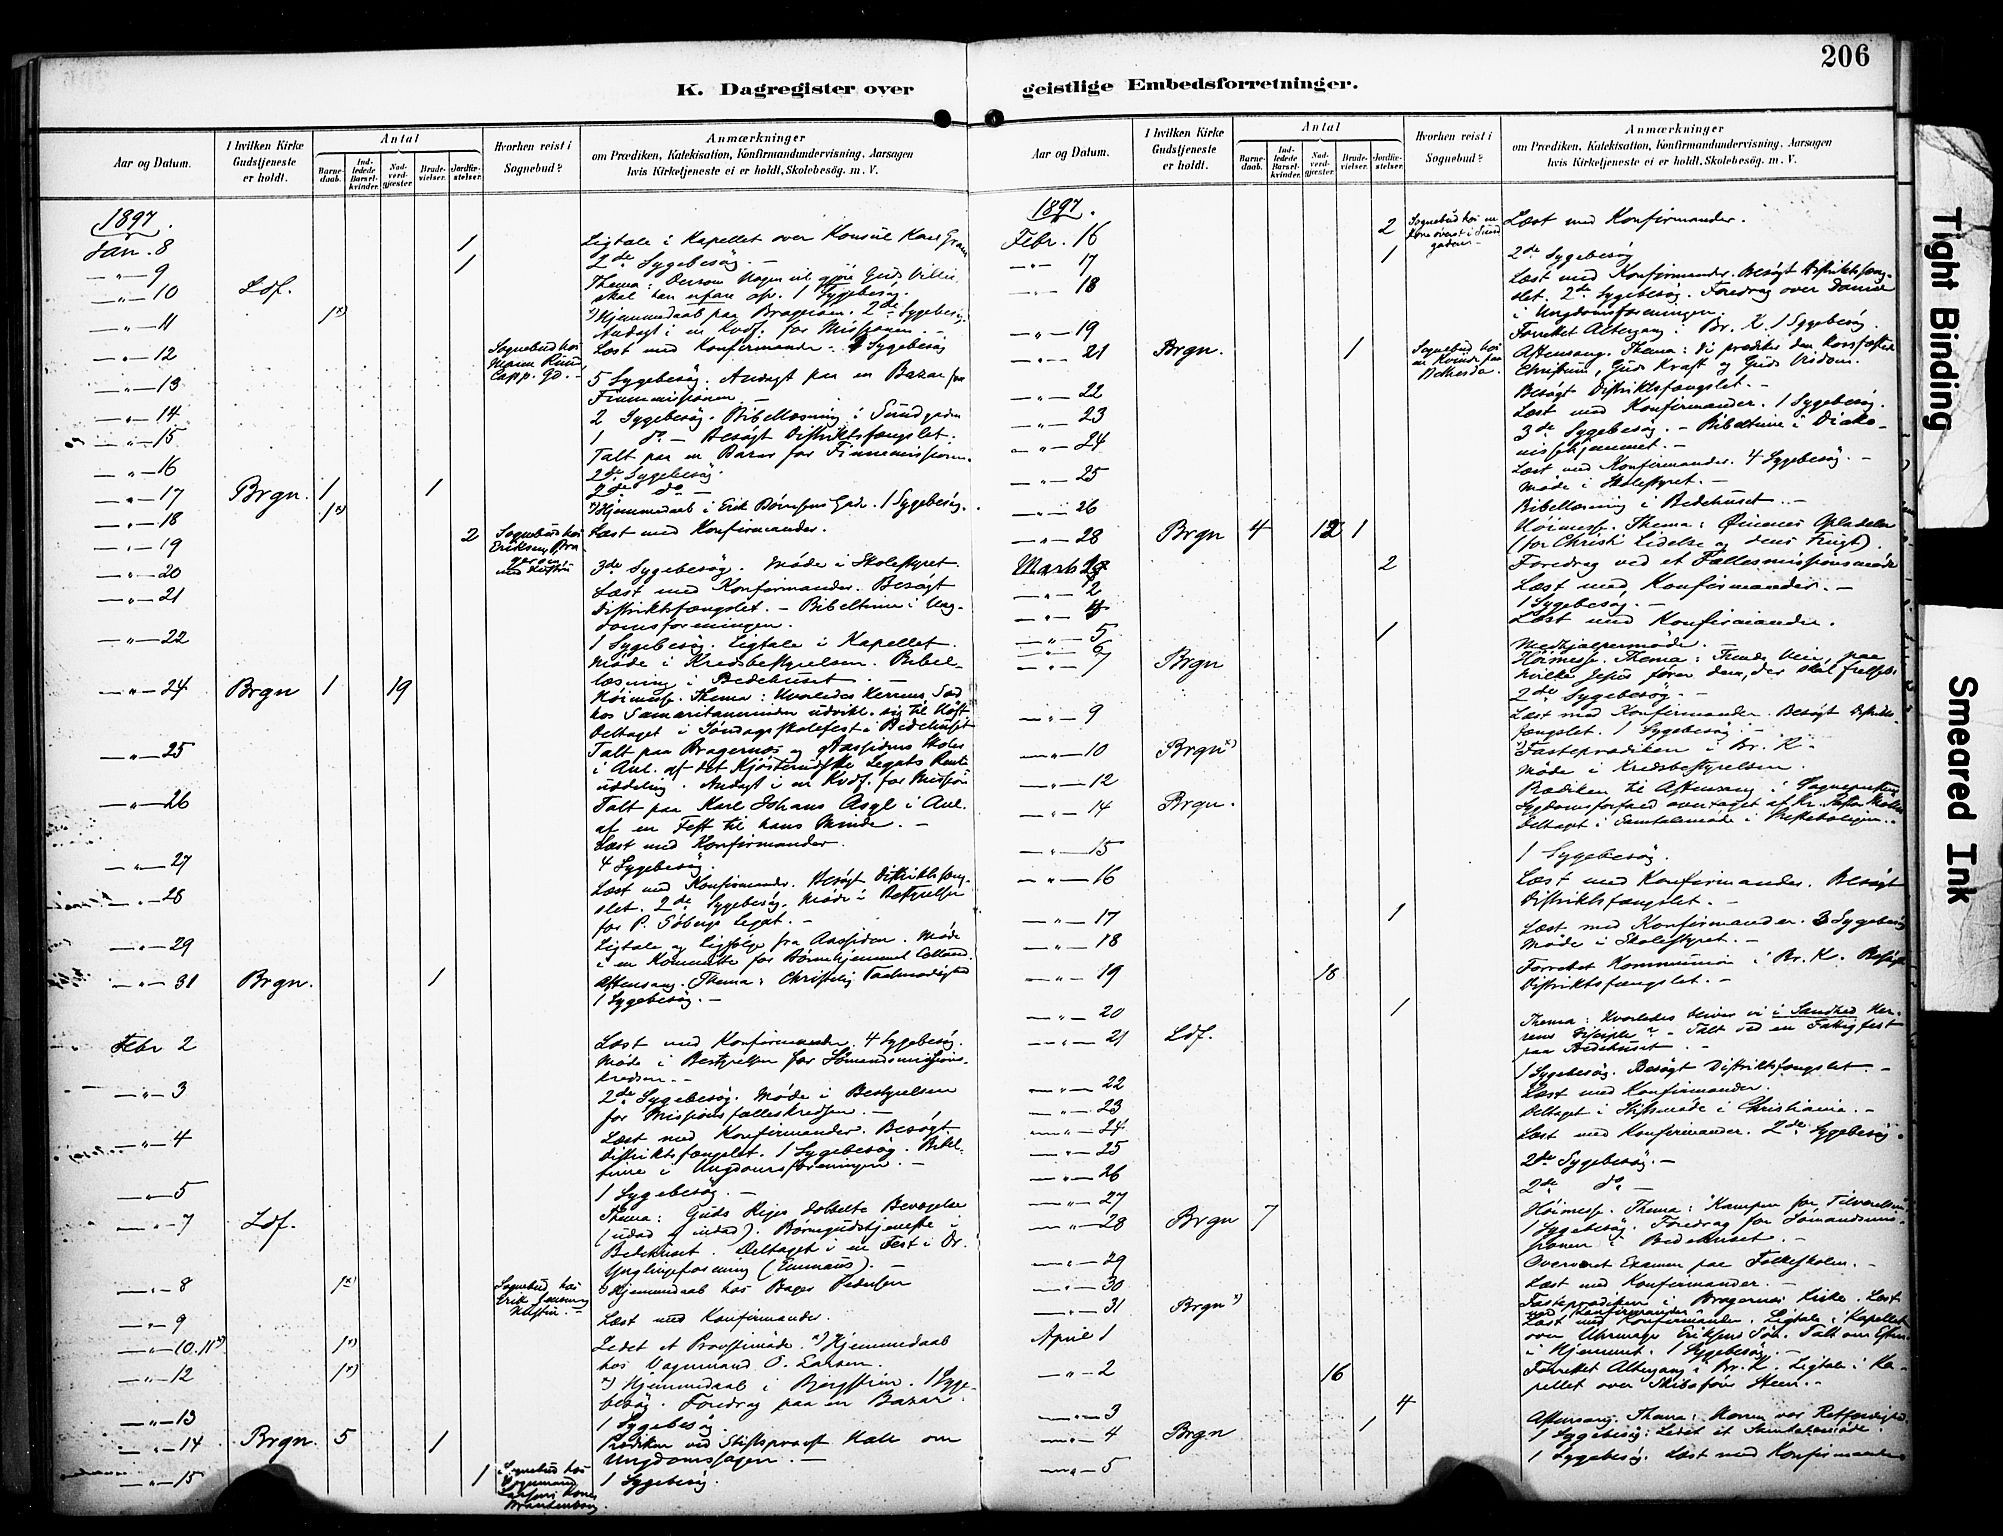 206
K. Dagregister over geistlige Embedsforretninger.
Aar og Datum.
I hvilken Kirke Gudstjeneste er holdt.
Antal
Barnedaab.
Indledede Barselkvinder.
Nadverdgjester.
Brudevielser.
Jordfæstelser.
Hvorhen reist i Sognebud?
Anmærkninger
om Prædiken, Katekisation, Konfirmandundervisning, Aarsagen
hvis Kirketjeneste ei er holdt, Skolebesøg, m. V.
1897.
Jan. 8 1 Ligtale i Kapellet over Konsul
" 9 1 2de Sygebesøg. —
" 10 Ldf. Thema: Dersom Nogen vil gjøre Guds Villie
skal han erfare osv. 1 Sygebesøg.
" 11 1 x) x) Hjemmedaab paa Bragernes. 2de Sygebesøg.
Andagt i en Kvdf. for Missionen. —
" 12 Sognebud hos Læst med Konfirmander. Sygebesøg
" 13 5 Sygebesøg. Andagt paa en Bazar for
Finnemissionen —
" 14 2 Sygebesøg. Bibellæsning i Sundgaden
" 15 1 do — Besøgt Distriktsfængslet.
" 16 Talt paa en Bazar for Finnemissionen.
2de Sygebesøg.
" 17 Brgn. 1 1 2de do —
" 18 1 x) x) Hjemmedaab i Erik Børresens Gade. 1 Sygebesøg.
" 19 2 Sognebud hos Læst med Konfirmander.
" 20 3de Sygebesøg. Møde i Skolestyret.
" 21 Læst med Konfirmander. Besøgt
Distriktsfængslet. — Bibeltime i Ung-
domsforeningen.
" 22 1 Sygebesøg. Ligtale i Kapellet.
Møde i Kredsbestyrelsen. Bibel-
læsning i Bedehuset. —
" 24 Brgn 1 19 Høimesse. Thema: Hvorledes Herrens Sæd
hos Samaritaninden udvikl. sig til Høst
Deltaget i Søndagsskolefest i Bedehuset
" 25 Talt paa Bragernes og Aassidens Skoler
i Anl. af det Kjøsterudske Legats Rente
uddeling. Andagt i en Kvdf. for Mission
" 26 Talt paa Karl Johans Asyl i Anl.
af en Fest til hans Minde. —
Læst med Konfirmander.
" 27 4 Sygebesøg.
" 28 Læst med Konfirmander. Besøgt Distriktsfæng-
slet. 2de Sygebesøg. Møde i Bestyrelsen
for P. Søbergs Legat. —
" 29 Ligtale og Ligfølge fra Aassiden. Møde
i en Kommitte for Børnehjemmet
" 31 Brgn. 1 Aftensang. Thema: Christelig Taalmodighed
1 Sygebesøg. —
Febr 2 Læst med Konfirmander. 4 Sygebesøg.
Møde i Bestyrelsen for Sømandsmissions-
kredsen. —
" 3 2de Sygebesøg. Møde i Bestyrelsen
for Missionsfælleskredsen. —
" 4 Læst med Konfirmander. Besøgt
Distriktsfængslet. 1 Sygebesøg. Bibel-
time i Ungdomsforeningen. —
" 5 1 Sygebesøg. —
" 7 Ldf. Thema: Guds Riges dobbelte Bevægelse
(udad og indad). Børnegudstjeneste i
Bedehuset. Deltaget i en Fest i Dr.
Ynglingeforening (Emmaus). —
" 8 1 x) Sognebud hos x) Hjemmedaab hos Bager Pedersen
" 9 Læst med Konfirmander.
" 10. 11 x) 1 x) Ledet et Provstimøde. x) Hjemmedaab
hos Vognmand O. Larsen.
" 12 1 x) x) Hjemmedaab i Bjergstien. 1 Syge-
besøg. Foredrag paa en Bazar.
" 13 1 Sygebesøg.
" 14 Brgn. 5 1 Prædiken ved Stiftsprovst Hall om
Ungdomssagen. —
" 15 1 Sognebud hos 1 Sygebesøg.
Aar og Datum.
I hvilken Kirke Gudstjeneste er holdt.
Antal
Barnedaab.
Indledede Barselkvinder.
Nadverdgjester.
Brudevielser.
Jordfæstelser.
Hvorhen reist i Sognebud?
Anmærkninger
om Prædiken, Katekisation, Konfirmandundervisning, Aarsagen
hvis Kirketjeneste ei er holdt, Skolebesøg, m. V.
1897.
Febr. 16 2 Sognebud hos en Læst med Konfirmander.
" 17 1 2de Sygebesøg
" 18 Læst med Konfirmander. Besøgt Distriktsfæng-
slet. 2de Sygebesøg. Foredrag over
i Ungdomsforeningen.
" 19 Forrettet Altergang i Br. K. 1 Sygebesøg
" 21 Brgn. 1 Sognebud hos en Kvinde paa Bethesda. Aftensang. Thema: Vi prædike den korsfæstede
Christum, Guds Kraft og Guds Visdom.
" 22 Besøgt Distriktsfængslet. —
" 23 Læst med Konfirmander. 1 Sygebesøg.
" 24 3de Sygebesøg. — Bibeltime i Diako-
nissehjemmet. —
" 25 Læst med Konfirmander. 4 Sygebesøg. —
Møde i Skolestyret. —
" 26 Bibellæsning i Bedehuset. —
" 28 Brgn 4 12 1 Høimesse. Thema: Øinenes Opladelse
(for Christi Lidelse og dens Frugt).
Marts 2 Foredrag ved et Fællesmissionsmøde
" 2 Læst med Konfirmander. —
1 Sygebesøg. —
" 4 Læst med Konfirmander.
" 5 1
" 6 Medhjælpermøde.
" 7 Brgn Høimesse. Thema: Veien, paa
hvilke Jesus fører den, der skal frelses.
2de Sygebesøg. —
" 9 Læst med Konfirmander. Besøgt Distrikts-
fængslet. 1 Sygebesøg. —
" 10 Brgn x) x) Fasteprædiken i Br. K. —
" 12 Møde i Kredsbestyrelsen.
" 14 Brgn. Prædiken til Aftensang i
Sygdomsforfald overtaget af
Deltaget i Samtalemøde i
" 15 1 Sygebesøg.
" 16 Læst med Konfirmander. Besøgt
Distriktsfængslet. —
" 17 1 Læst med Konfirmander. 3 Sygebesøg
" 18 Møde i Skolestyret. —
" 19 18 Forrettet Kommunion i Br. K. Besøgt
Distriktsfængslet. —
" 20 1
" 21 Ldf. Thema: Hvorledes bliver vi i Sandhed Her-
rens Disciple? — Talt ved en
paa Bedehuset. —
" 22 1 Sygebesøg. Besøgt Distriktsfængslet. —
" 23 Læst med Konfirmander.
" 24 Deltaget i Stiftsmøde i Christiania. —
" 25 Læst med Konfirmander. 2de Sygebesøg.
" 26 2de Sygebesøg. —
" 27 2de do —
" 28 Brgn 7 Høimesse. Thema: Kampen for Tilværelsen
1 Sygebesøg. Foredrag for Sømandsmis-
sionen i Bedehuset. —
" 29 Overværet Examen paa Folkeskolen. —
" 30 Læst med Konfirmander. —
" 31 Brgn x) Fasteprædiken i Bragernes Kirke. Læst
med Konfirmander.
April 1 Læst med Konfirmander. Ligtale i Kapellet
over Uhrmager Eriksens Søn. Talt om
i Hjemmet. 1 Sygebesøg. —
" 2 16 Forrettet Altergang i Br. K. Ligtale i Ka-
pellet over Skibsfører Steen. —
" 3 4
" 4 Brgn 1 Aftensang. Thema: Herren vor Retfærdighed.
1 Sygebesøg. Ledet et Samtalemøde.
" 5 1 Sygebesøg. Læst med Konfirmander
Tight Binding
Smeared Ink